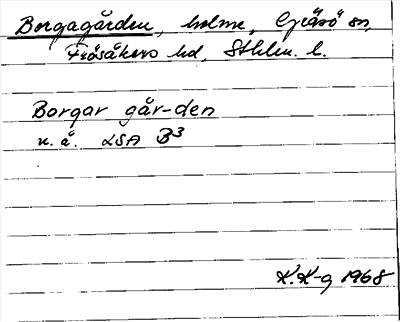 Borgagården, holme, Gräsö sn,
Frösåkers hd, Sthlm. l.
Borgar går-den
u. å. LSA B³
K.K-g 1968